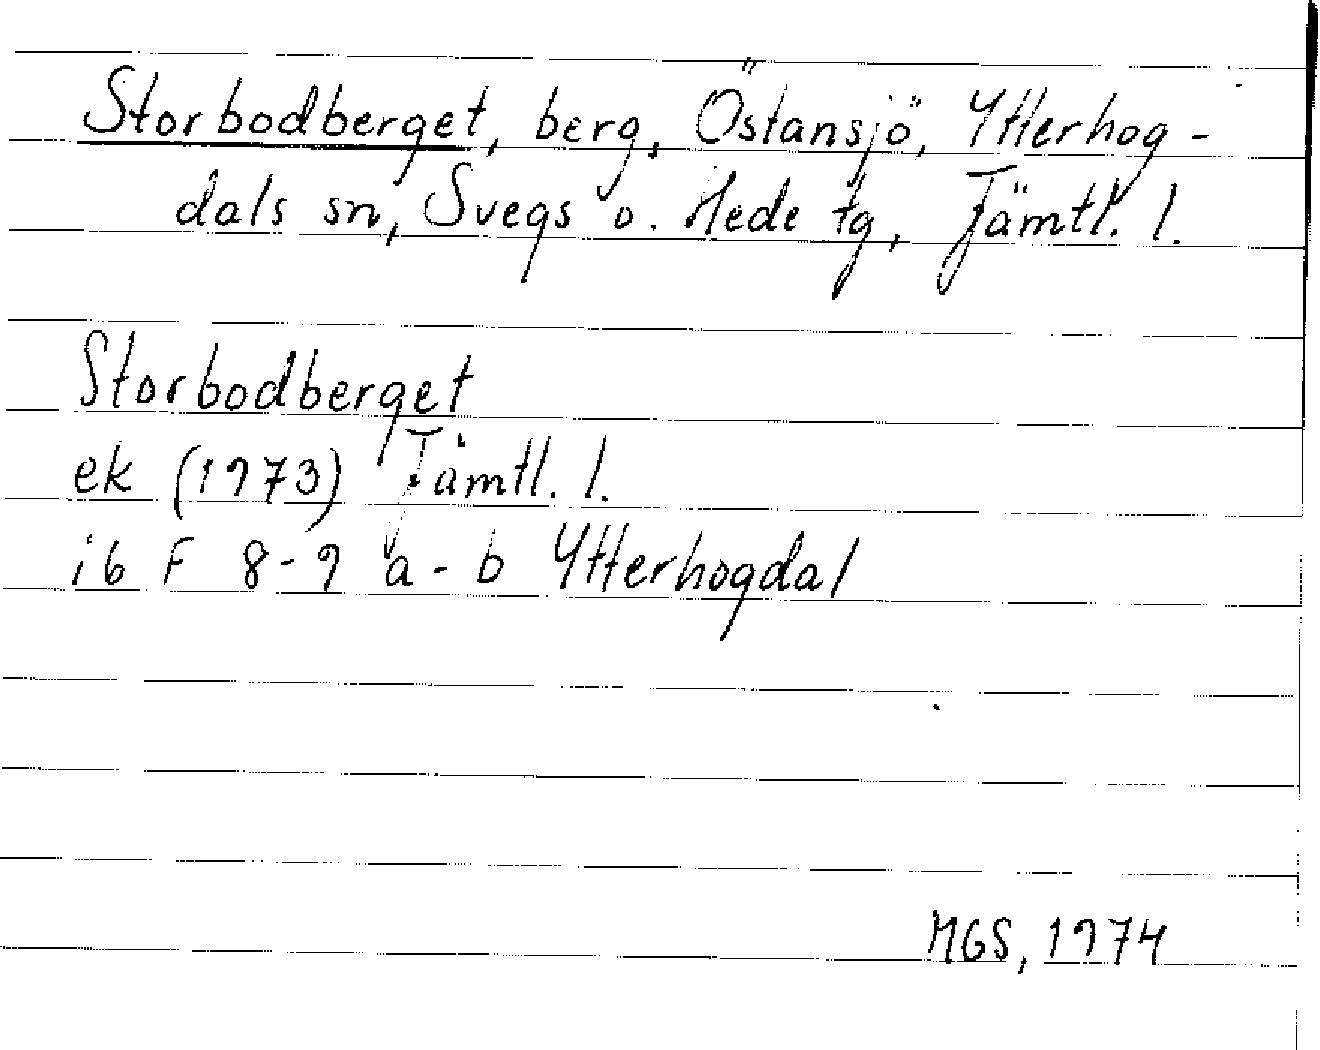 Storbodberget, berg, Östansjö, Ytterhog-
dals sn, Svegs o. Hede tg, Jämtl. l.
Storbodberget
ek (1973) Jämtl. l.
16 F 8-9 a-b Ytterhogdal
MGS, 1974